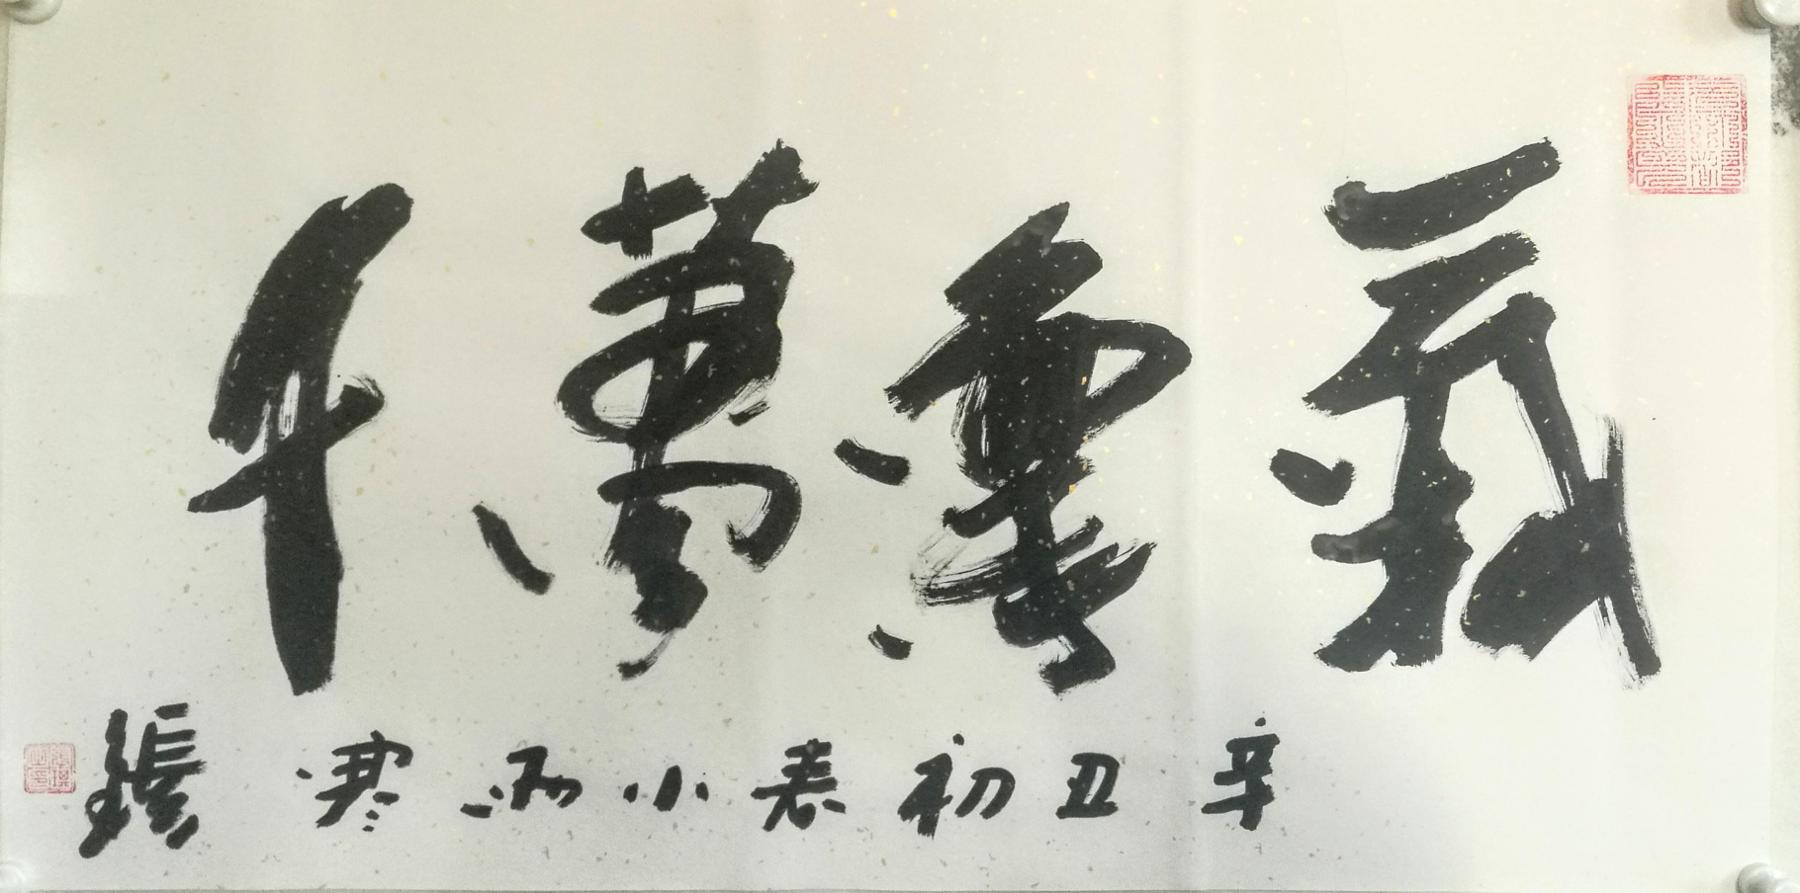 氣象萬千
辛丑初春小雨寒